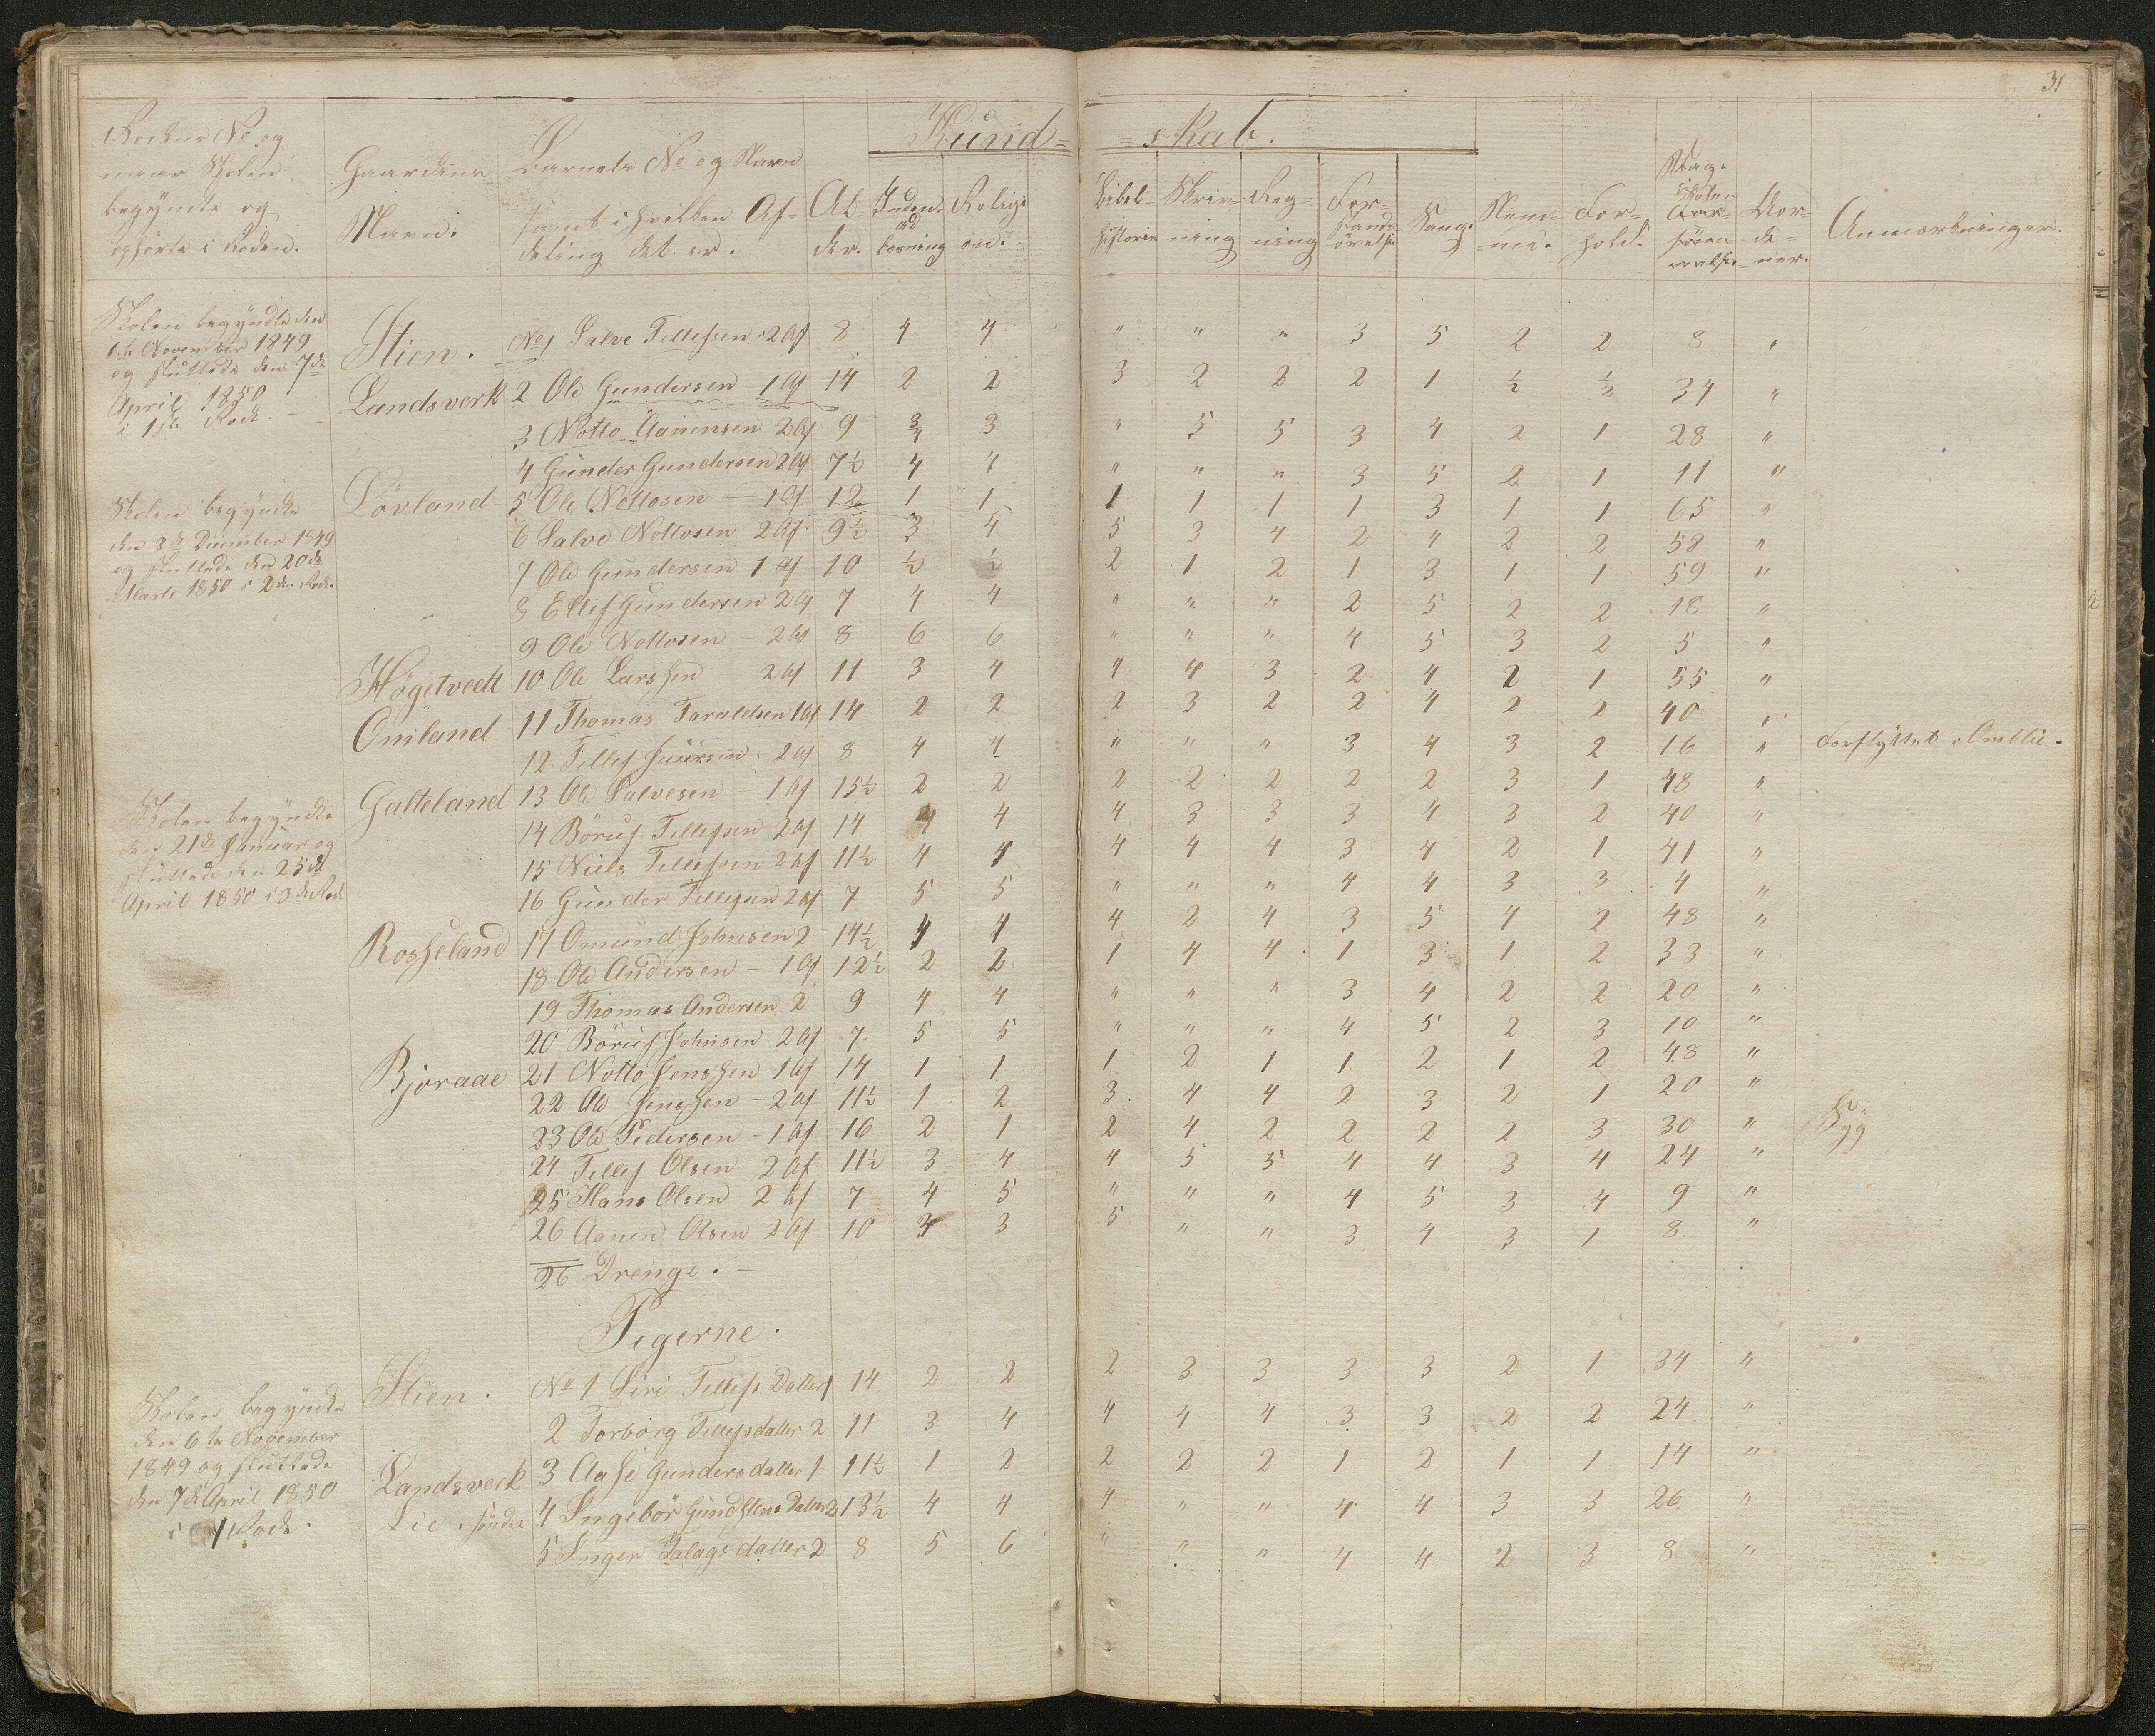 31
Kund= =skab.
Rodens No. og
naar Skolen
begyndte og
ophørte i Roden.
Gaardens
Navn.
Barnets No og Navn
samt i hvilken Af-
deling det er.
Al-
der.
Inden-
ad
læsning
Religi
on.
Bibel-
historie
Skriv-
ning
Reg=
ning
For=
stands
øvelse
Sang.
Nem=
me.
For=
hold.
Dage
Skolen
For=
sømmelse.
Mor=
de=
ner.
Anmærkninger.
Skolen begyndte den
6te November 1849
og sluttede den 7de
April 1850
i 1ste Rode.
Stien. No 1 Salve Tellefsen 2 Af 8 4 4 " " " 3 5 2 2 8 "
Landsverk 2 Ole Gundersen 1 Af 14 2 2 3 2 2 2 1 ½ ½ 34 "
3 Notto Aanensen 2 Af 9 3/4 3 " 5 5 3 4 2 1 28 "
4 Gunder Gundersen 2 Af 7½ 4 4 " " " 3 5 2 1 11 "
Skolen begyndte
den 3de December 1849
og sluttede den 20de
Marts 1850 i 2de Rode.
Lövland 5 Ole Nottosen – 1 Af 12 1 1 1 1 1 1 3 1 1 65 "
6 Salve Nottosen 2 Af 9½ 3 4 5 3 4 2 4 2 2 58 "
7 Ole Gundersen 1 Af 10 ½ ½ 2 1 2 1 3 1 1 59 "
8 Ellef Gundersen 2 Af 7 4 4 " " " 2 5 2 2 18 "
9 Ole Nottosen – 2 Af 8 6 6 " " " 4 5 3 2 5 "
Høgetvedt 10 Ole Larssen – 2 Af 11 3 4 4 4 3 2 4 2 1 55 "
Omland 11 Thomas Taraldsen 1 Af 14 2 2 2 3 2 2 4 2 2 40 "
12 Tellef 2 Af 8 4 4 " " " 3 4 3 2 16 " Forflyttet Omblie.
Skolen begyndte
den 21de Januar og
sluttede den 25de
April 1850 i 3de Rode
Galteland 13 Ole Salvesen – 1 Af 15½ 2 2 2 2 2 2 2 3 1 48 "
14 Böruf Tellefsen 2 Af 14 4 4 4 3 3 3 4 3 2 40 "
15 Niels Tellefsen 2 Af 11½ 4 4 4 4 4 3 4 2 1 41 "
16 Gunder Tellefsen 2 Af 7 5 5 " " " 4 4 3 3 4 "
Rosseland 17 Omund Johnsen 2 14½ 4 4 4 2 4 3 5 4 2 48 "
18 Ole Andersen – 1 Af 12½ 2 2 1 4 4 1 3 1 2 33 "
19 Thomas Andersen 2 9 4 4 " " " 3 4 2 2 20 "
20 Böruf Johnsen 2 Af 7 5 5 " " " 4 5 2 3 10 "
Bjoraae 21 Notto Jenssen 1 Af 14 1 1 1 2 1 1 2 1 2 48 "
22 Ole Jenssen – 2 Af 11½ 1 2 3 4 4 2 3 2 1 20 "
23 Ole Pedersen – 1 Af 16 2 1 2 4 2 2 2 2 3 30 " Syg
24 Tellef Olsen 2 Af 11½ 3 4 4 5 5 4 4 3 4 24 "
25 Hans Olsen 2 Af 7 4 5 " " " 4 5 3 4 9 "
26 Aanen Olsen 2 Af 10 3 3 5 " " 3 4 3 1 8 "
26 Drenge.
Pigerne.
Skolen begyndte
den 6te November
1849 og sluttede
den 7de April 1850
i 1 Rode.
Stien. No 1 Siri Tellefs Datter 1 14 2 2 2 3 3 3 3 2 1 34 "
2 Torborg Tellefsdatter 2 11 3 4 4 4 4 3 3 2 2 24 "
Landsverk 3 Aase Gundersdatter 1 11½ 1 2 2 2 2 1 2 1 1 14 "
Lie. søndre 4 Ingebor Datter 2 13½ 4 4 4 " " 4 4 3 3 26 "
5 Inger datter 2 8 5 6 " " " 4 4 2 3 8 "